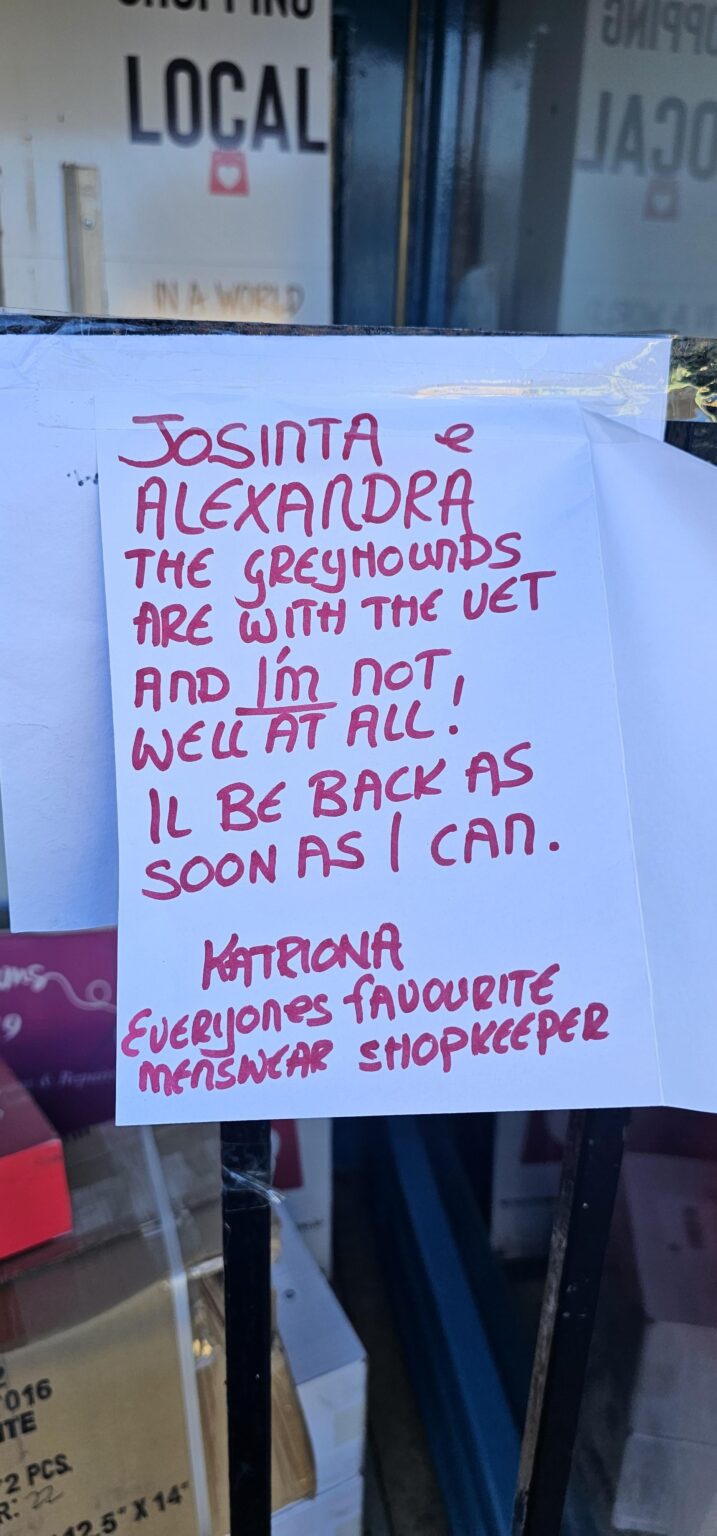 SHOPPING
LOCAL
IN A WORLD
SHOPPING
LOCAL
JOSINTA e
ALEXANDRA
THE GREYHOUNDS
ARE WITH THE VET
AND I'm NOT
WELL AT ALL!
IL BE BACK AS
SOON AS I CAN.
KATRIONA
EVERYONES FAVOURITE
MENSWEAR SHOPKEEPER
016
2 PCS.
R: 22
12.5" X 14"